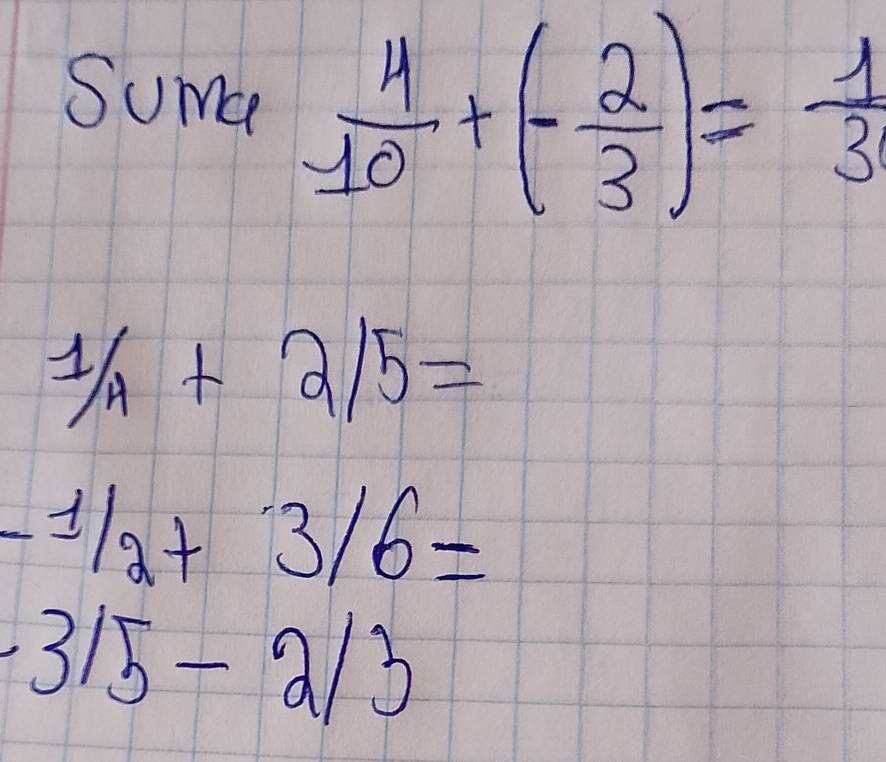 Suma 4/10 + (-2/3) = 1/3
1/4 + 2/5 =
-1/2 + 3/6 =
-3/5 - 2/3